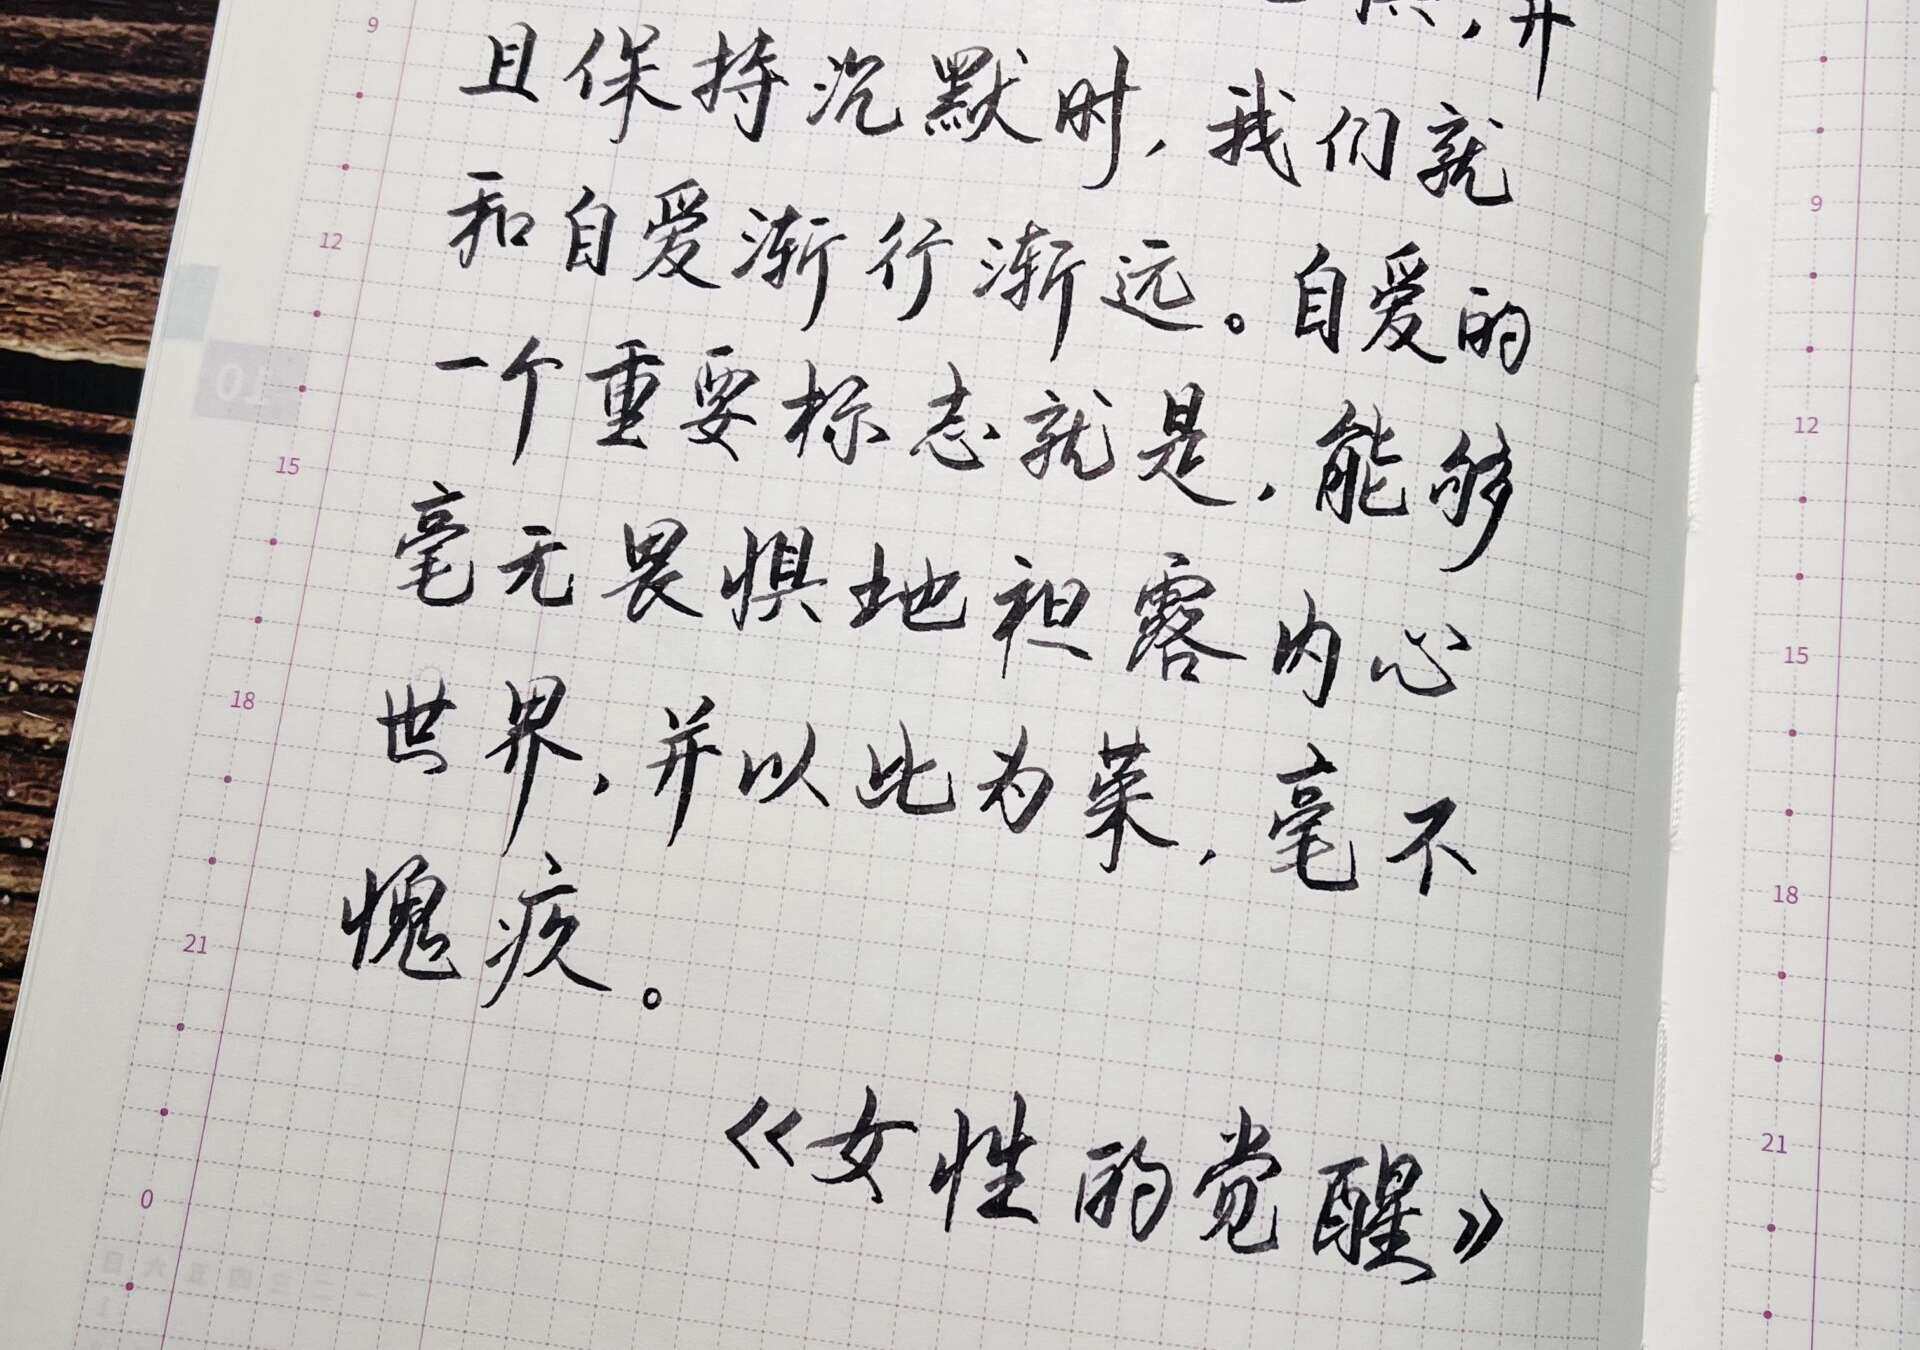 ，并
且保持沉默时，我们就
和自爱渐行渐远。自爱的
一个重要标志就是，能够
毫无畏惧地袒露内心
世界，并以此为荣，毫不
愧疚。
《女性的觉醒》
9
12
15
18
21
0
9
12
15
18
21